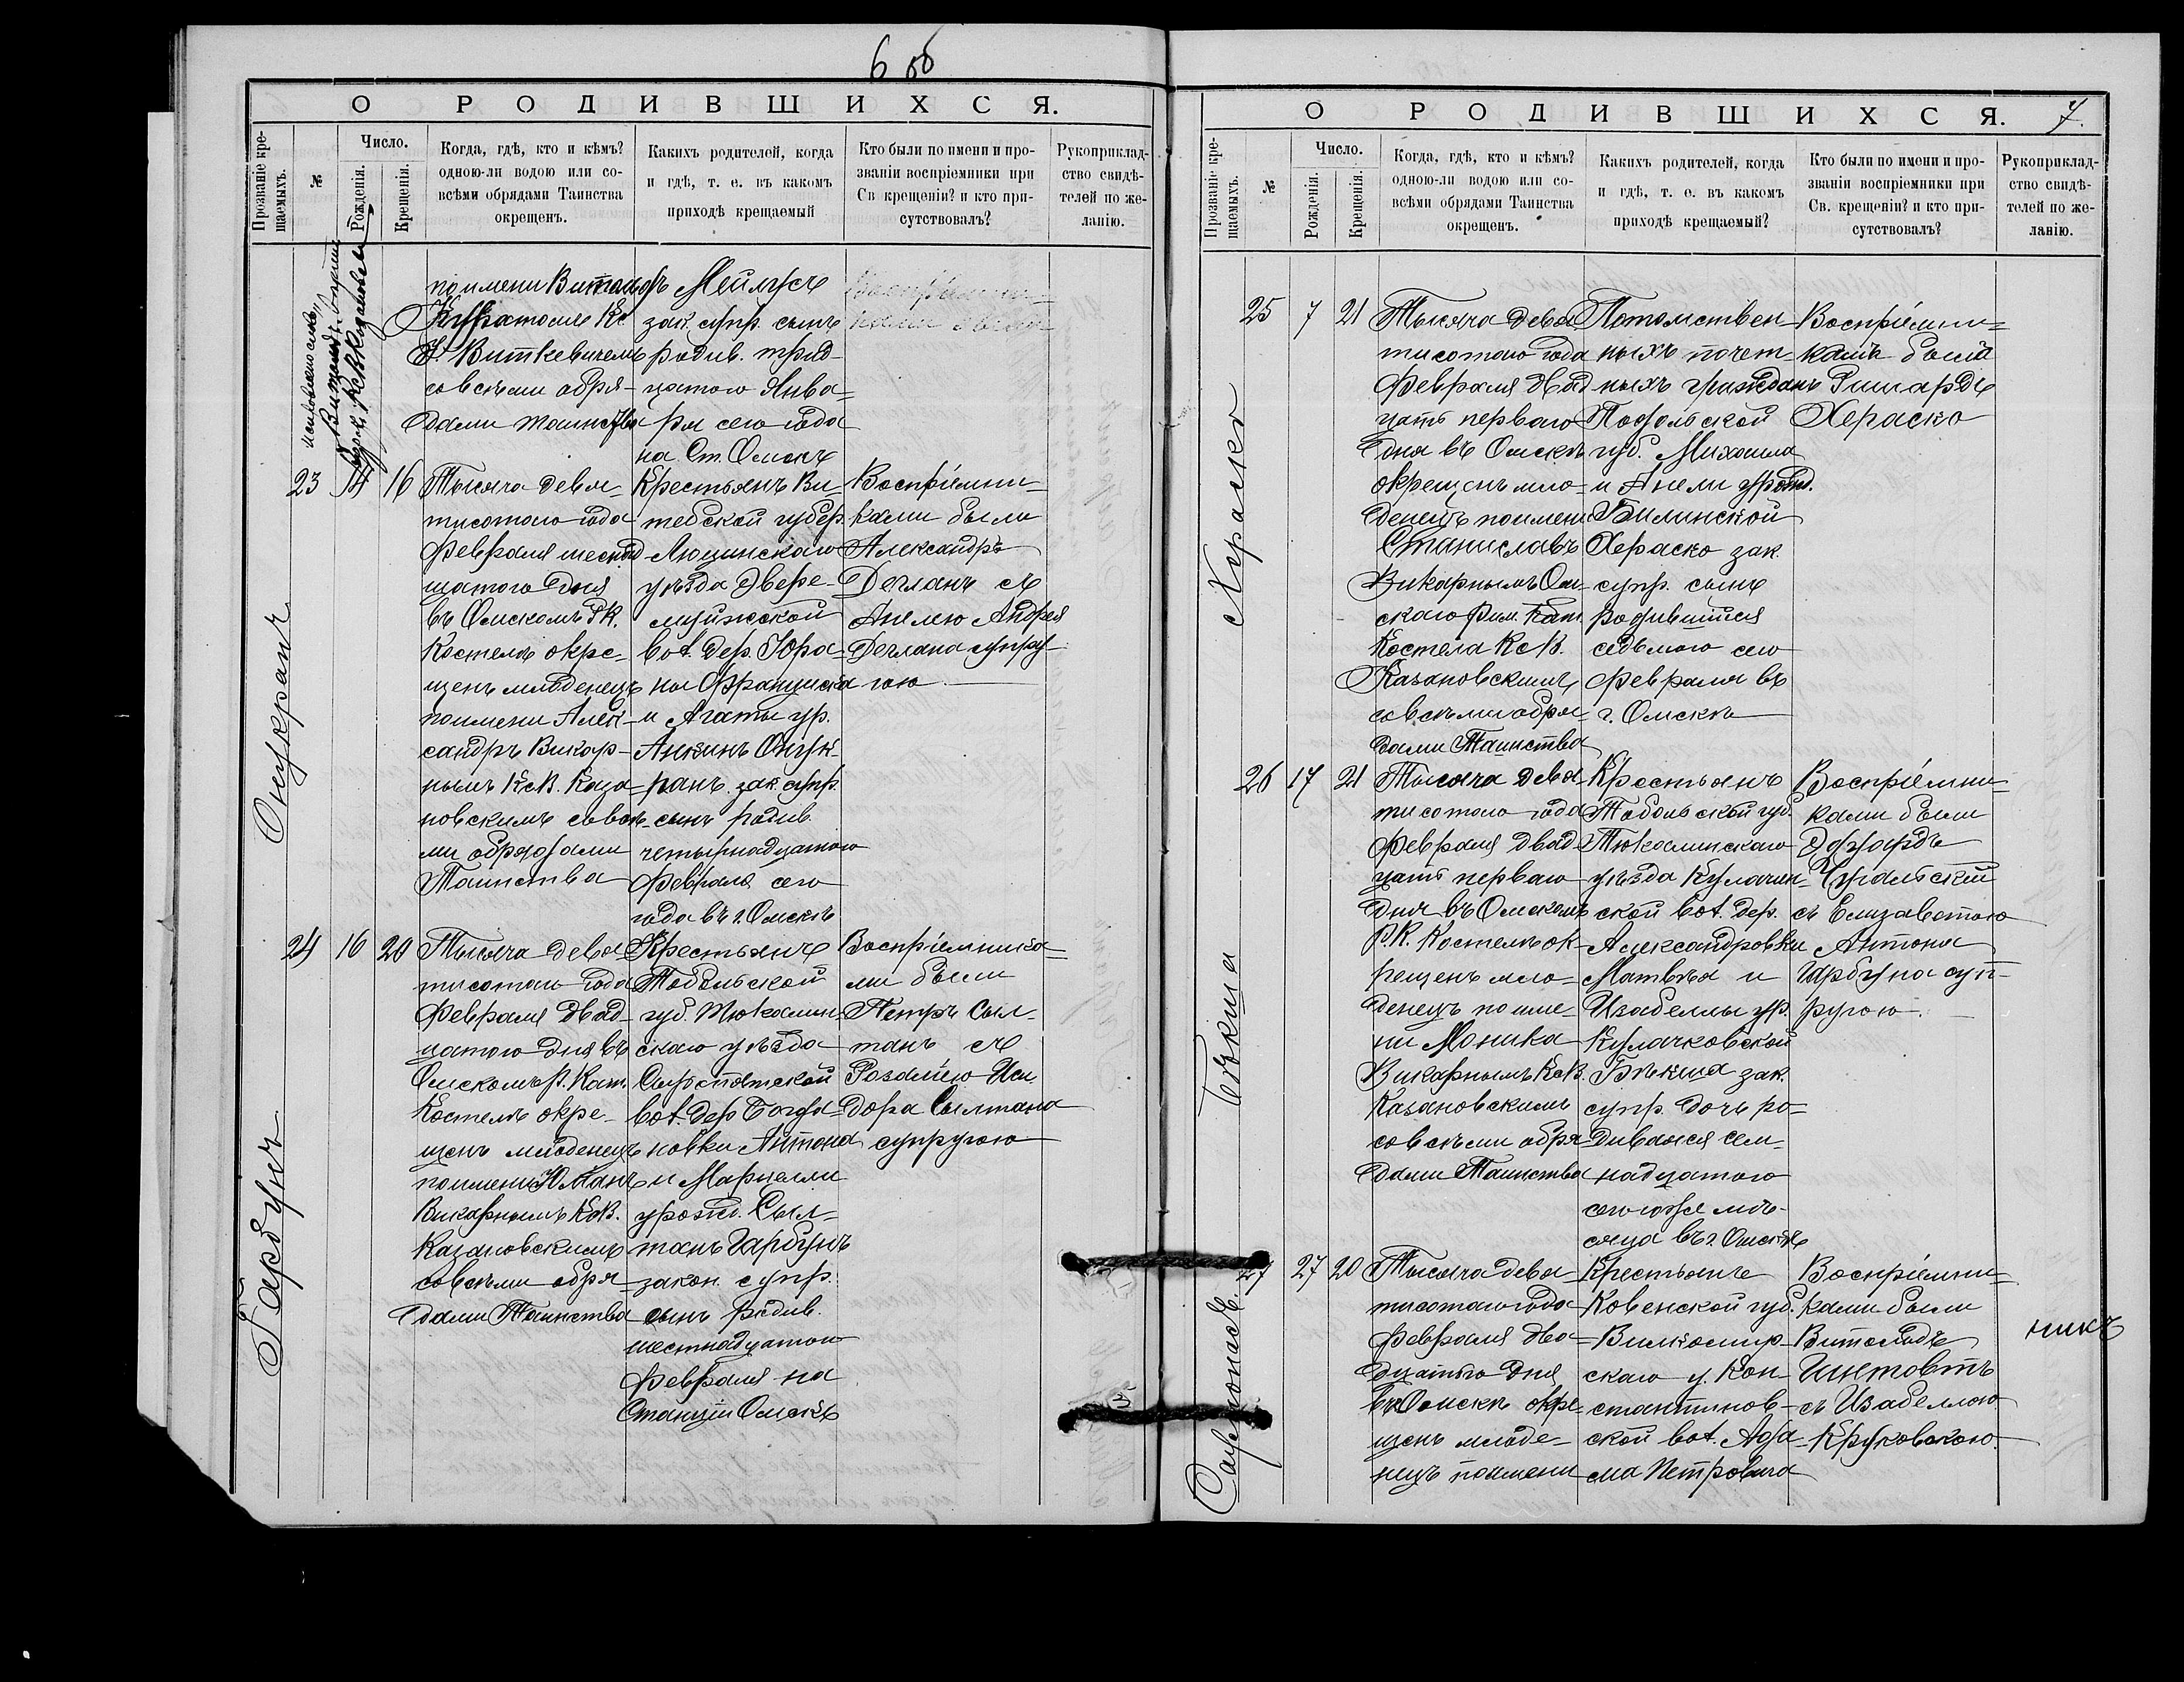 6 об
О РОДИВШИХСЯ.
Прозваніе кре-
щаемыхъ.
№
Число.
Рожденія.
Крещенія.
Когда, гдѣ, кто и кѣмъ?
одною-ли водою или со-
всѣми обрядами Таинства
окрещенъ.
Какихъ родителей, когда
и гдѣ, т. е. въ какомъ
приходѣ крещаемый
Кто были по имени и про-
званіи воспріемники при
Св крещеніи? и кто при-
сутствовалъ?
Рукоприклад-
ство свидѣ-
телей по же-
ланію.
поимени Витольдъ
Куратомъ Кс
Виткевичемъ
со всѣми обря-
дами таинства
Мейлусъ
зак. супр. сынъ
родив. трид-
цатого Янва-
ря сего года
на Ст. Омскъ
Онукранъ
23 14 16
Тысяча девя-
тисотого года
февраля шестнад-
цатого дня
въ Омскомъ Р.К.
Костелѣ окре-
щенъ младенецъ
поимени Алек-
сандръ Викар-
нымъ Кс В. Каза-
новскимъ со всѣ-
ми обрядами
Таинства
Крестьянъ Ви-
тебской губер.
Люцинскаго
уѣзда Эвере-
муйжской
вол. дер. Юра-
ны Франциска
и Агаты ур.
Анкинъ Онук-
ранъ. зак. супр.
сынъ родив.
четырнадцатого
февраля сего
года въ г. Омскѣ
Воспріемни-
ками были
Александръ
Дегланъ съ
Анелею Андрея
Деглана супру-
гою
Гарбунъ
24 16 20
Тысяча девя-
тисотого года
февраля двад-
цатого дня въ
Омскомъ Р. Кат.
Костелѣ окре-
щенъ младенецъ
поимени Юлианъ
Викарнымъ КсВ.
Казановскимъ
со всѣми обря-
дами Таинства
Крестьянъ
Тобольской
губ. Тюкалин-
скаго уѣзда
Сыропятской
вол. дер Богда-
новки Антона
и Марцели
урожд. Сыл-
танъ Гарбунъ
закон. супр.
сынъ родив.
шестнадцатого
февраля на
Станціи Омскъ
Воспріемника-
ми были
Петръ Сыл-
танъ съ
Розаліею Иси-
дора Сылтана
супругою
О РОДИВШИХСЯ.
7.
Прозваніе кре-
щаемыхъ.
№
Число.
Рожденія.
Крещенія.
Когда, гдѣ, кто и кѣмъ?
одною-ли водою или со-
всѣми обрядами Таинства
окрещенъ.
Какихъ родителей, когда
и гдѣ, т. е. въ какомъ
приходѣ крещаемый?
Кто были по имени и про-
званіи воспріемники при
Св. крещеніи? и кто при-
сутствовалъ?
Рукоприклад-
ство свидѣ-
телей по же-
ланію.
Хераско
25 7 21
Тысяча девя-
тисотого года
февраля двад-
цать перваго
дня въ Омскѣ
окрещенъ мла-
денецъ поимени
Станиславъ
Викарнымъ Ом-
скаго Рим. Кат.
Костела КсВ.
Казановскимъ
со всѣми обря-
дами Таинства
Потомствен-
ныхъ почет-
ныхъ гражданъ
Подольской
губ. Михаила
и Анели урожд.
Билинской
Хераско зак.
супр. сынъ
родившийся
седьмого сего
февраля въ
г. Омскѣ
Воспріемни-
камъ былъ
Ришардъ
Хераско
Бѣкша
26 17 21
Тысяча девя-
тисотого года
февраля двад-
цать перваго
дня въ Омскомъ
Р.К. Костелѣ ок-
рещенъ мла-
денецъ поиме-
ни Моника
Викарнымъ КсВ.
Казановскимъ
со всѣми обря-
дами Таинства
Крестьянъ
Тобольской губ.
Тюкалинскаго
уѣзда Кулачин-
ской вол. дер.
Александровки
Матвѣя и
Изабеллы ур.
Кулачковской
Бѣкша зак.
супр. дочь ро-
дившаяся сем-
надцатого
сегоже мѣ-
сяца въ г. Омскѣ
Воспріемни-
ками были
Эдуардъ
съ Елизаветою
Антона
Гарбуна суп-
ругою.
27 27 20
Тысяча девя-
тисотаго года
февраля два-
дцатого дня
въ Омскѣ окре-
щенъ младе-
нецъ поимени
Крестьянъ
Ковенской губ.
Вилкомир-
скаго у. Кон-
стантинов-
ской вол. Ада-
ма Петровича
Воспріемни-
ками были
Витольдъ
Гинтовтъ
съ Изабеллою
Круковскою.
никъ